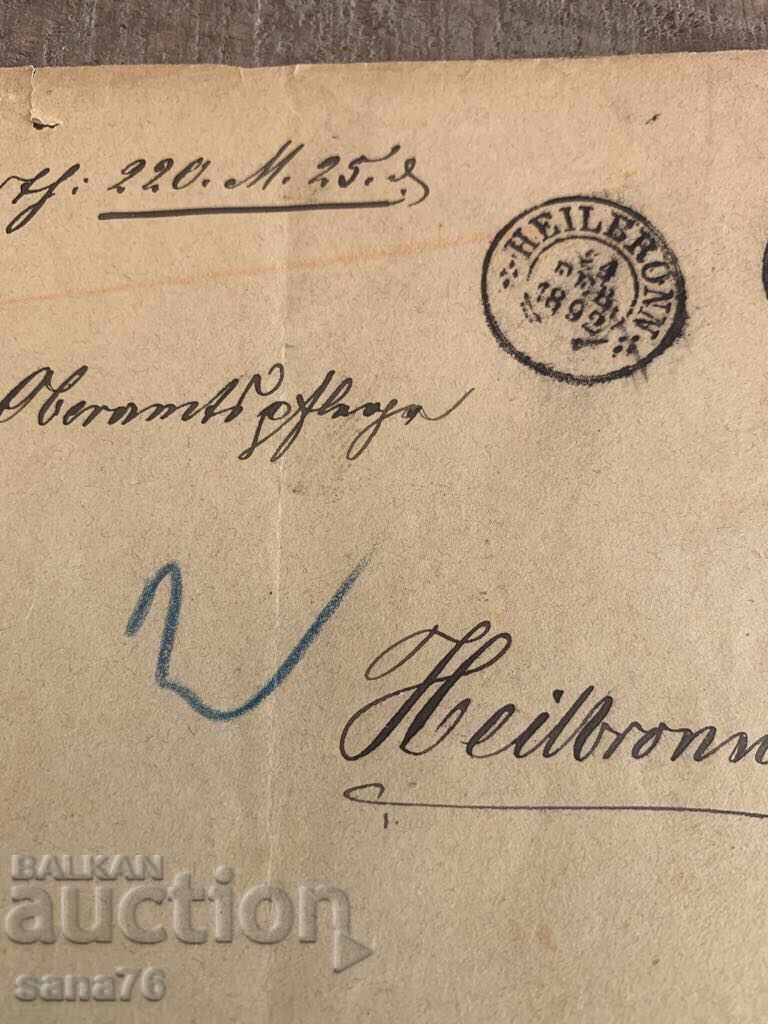 rth: 220. M. 25. ₰
HEILBRONN
FEB
189
Oberamtspflege
2
Heilbronn
BALKAN
auction
sana76